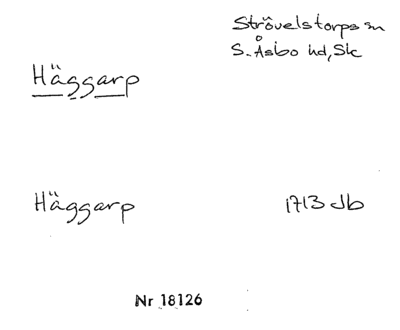 Strövelstorps sn
S. Åsbo hd, Sk
Häggarp
Häggarp 1713 Jb
Nr 18126